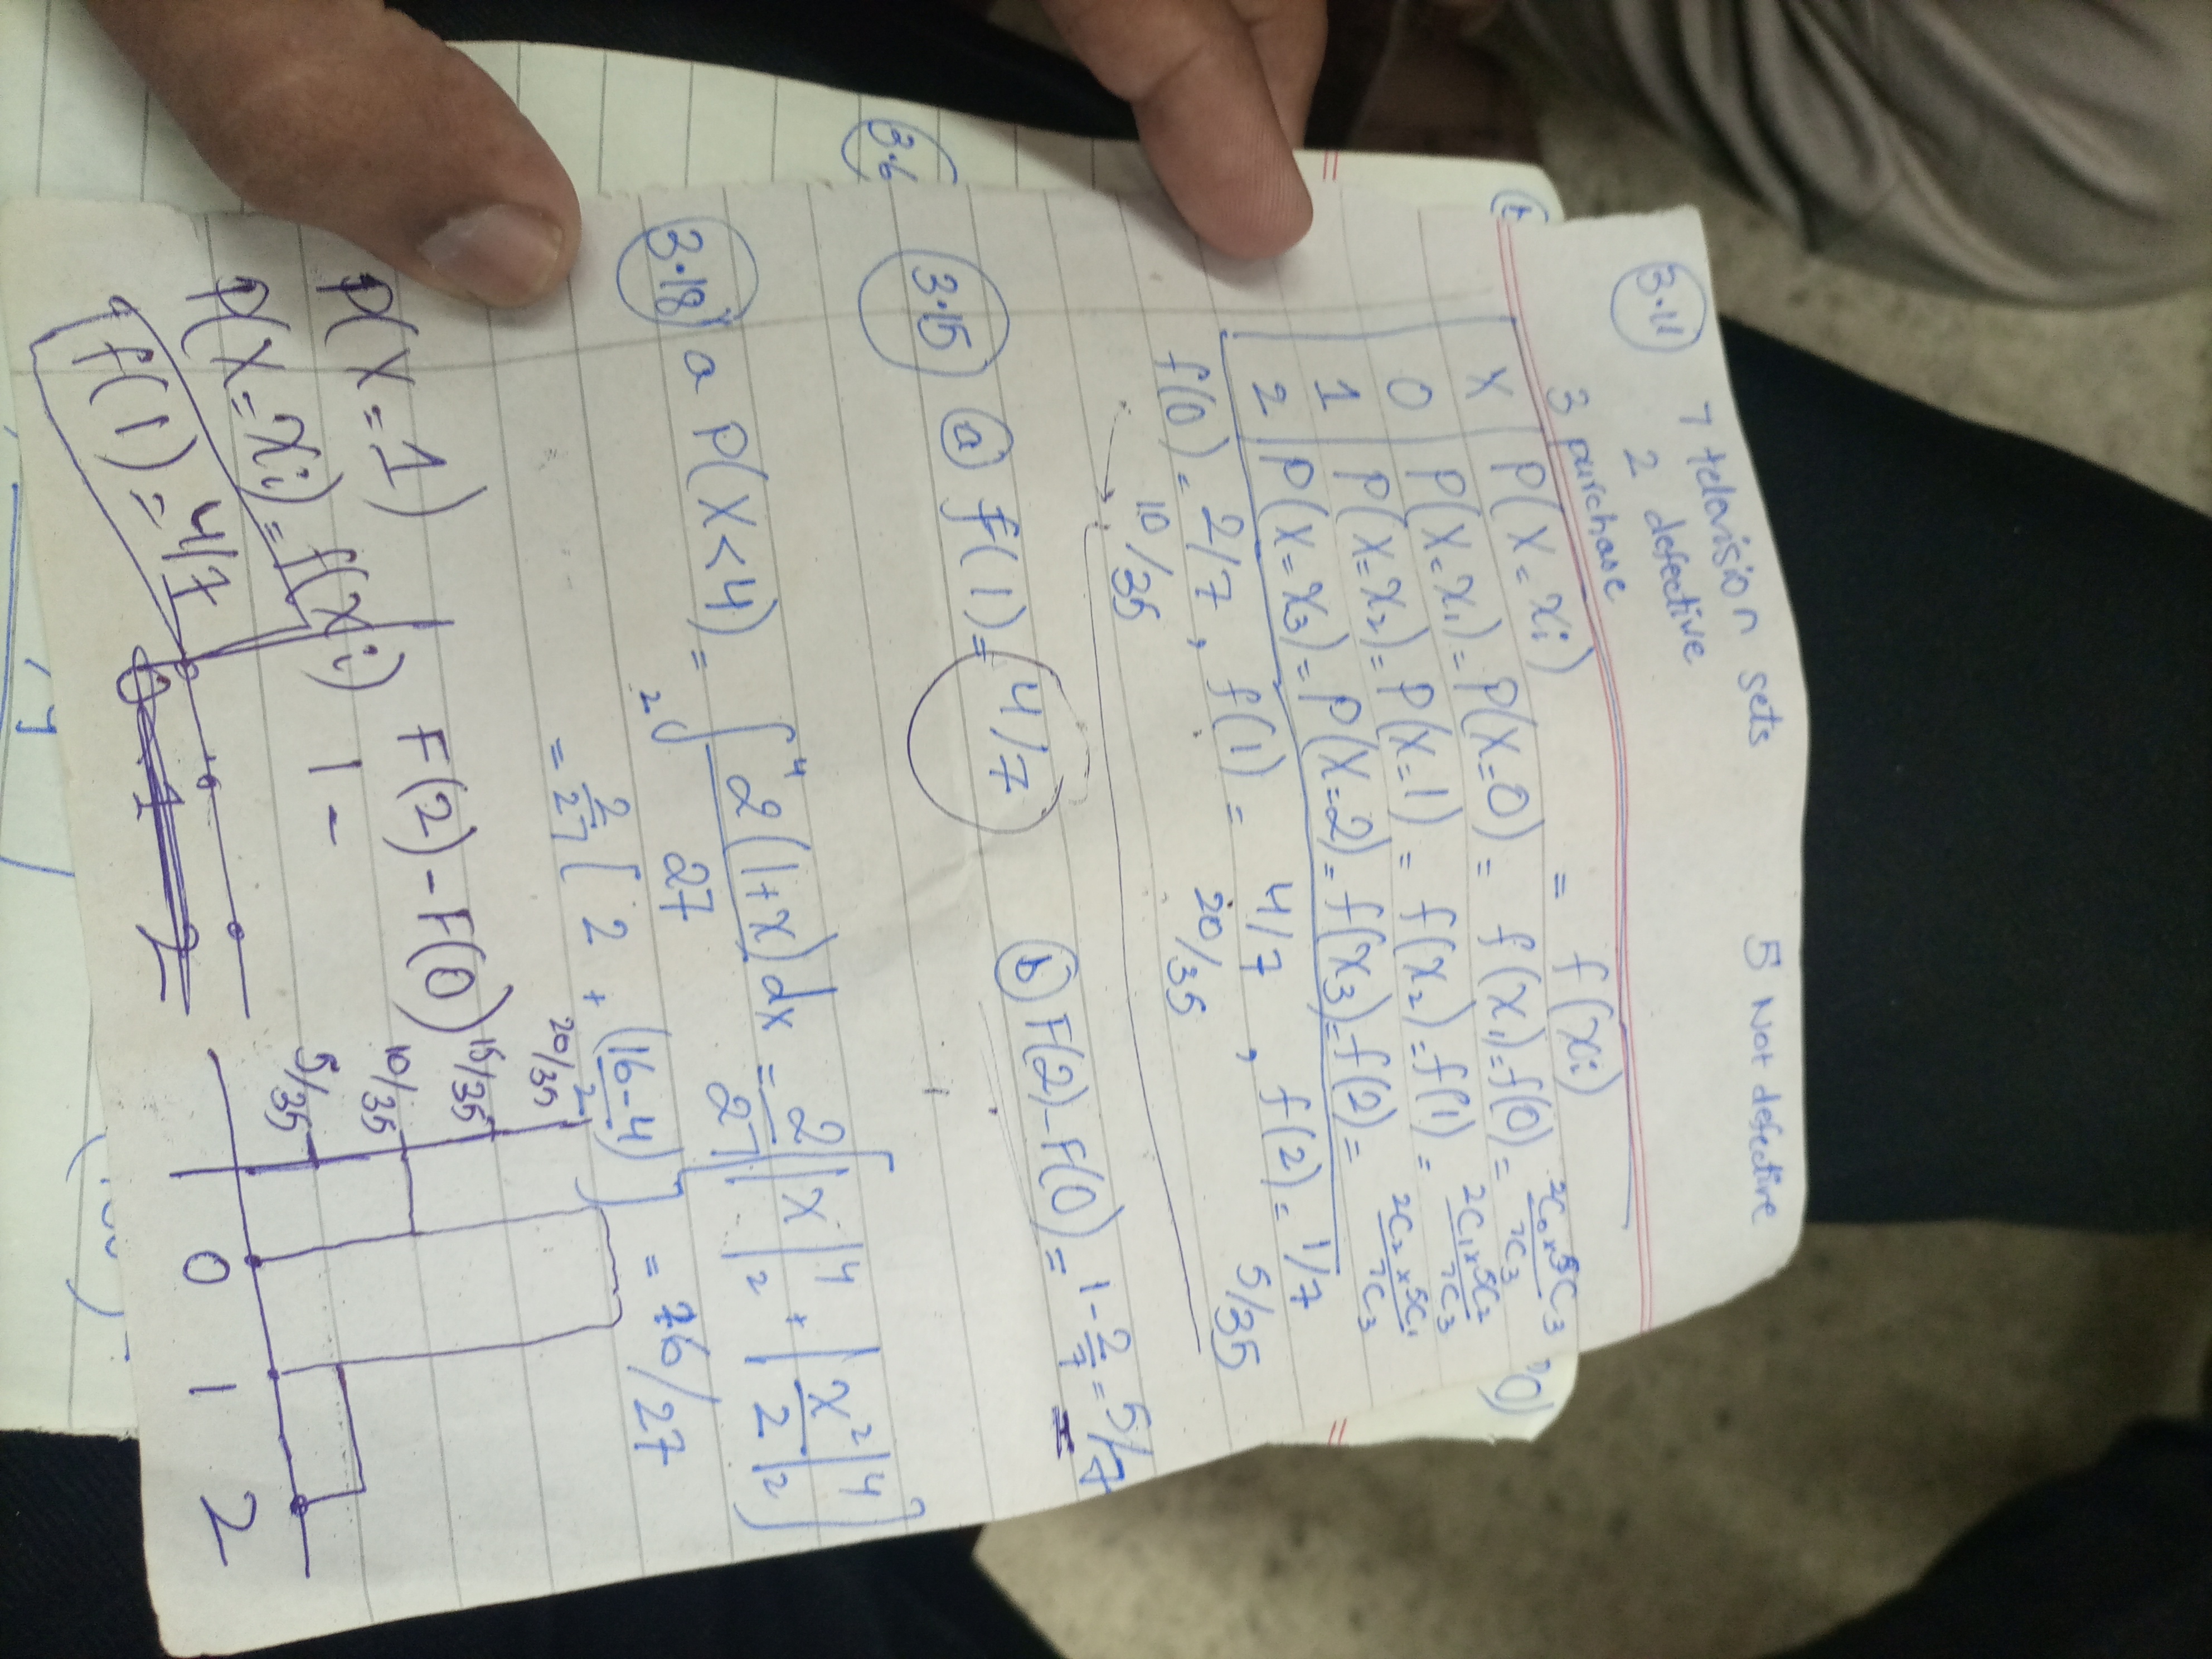 3.11
7 television sets 5 Not defective
2 defective
3 purchase
X P(X = xi) = f(xi)
0 P(X = x1) = P(X=0) = f(x1) = f(0) = 2C0 x 5C3 / 7C3
1 P(X = x2) = P(X=1) = f(x2) = f(1) = 2C1 x 5C2 / 7C3
2 P(X = x3) = P(X=2) = f(x3) = f(2) = 2C2 x 5C1 / 7C3
f(0) = 2/7, f(1) = 4/7, f(2) = 1/7
10/35 20/35 5/35
3.15 a f(1) = 4/7 b F(2)-F(0) = 1 - 2/7 = 5/7
3.6
3.18 a P(X<4) = ∫ 2 4 2(1+x)/27 dx = 2/27 [ |x| 4 2 + |x²/2| 4 2 ]
= 2/27 [ 2 + (16-4)/2 ] = 16/27
P(X=1) F(2) - F(0)
P(X=xi) = f(xi) 1 -
f(1) = 4/7
20/35
15/35
10/35
5/35
0 1 2
0 1 2